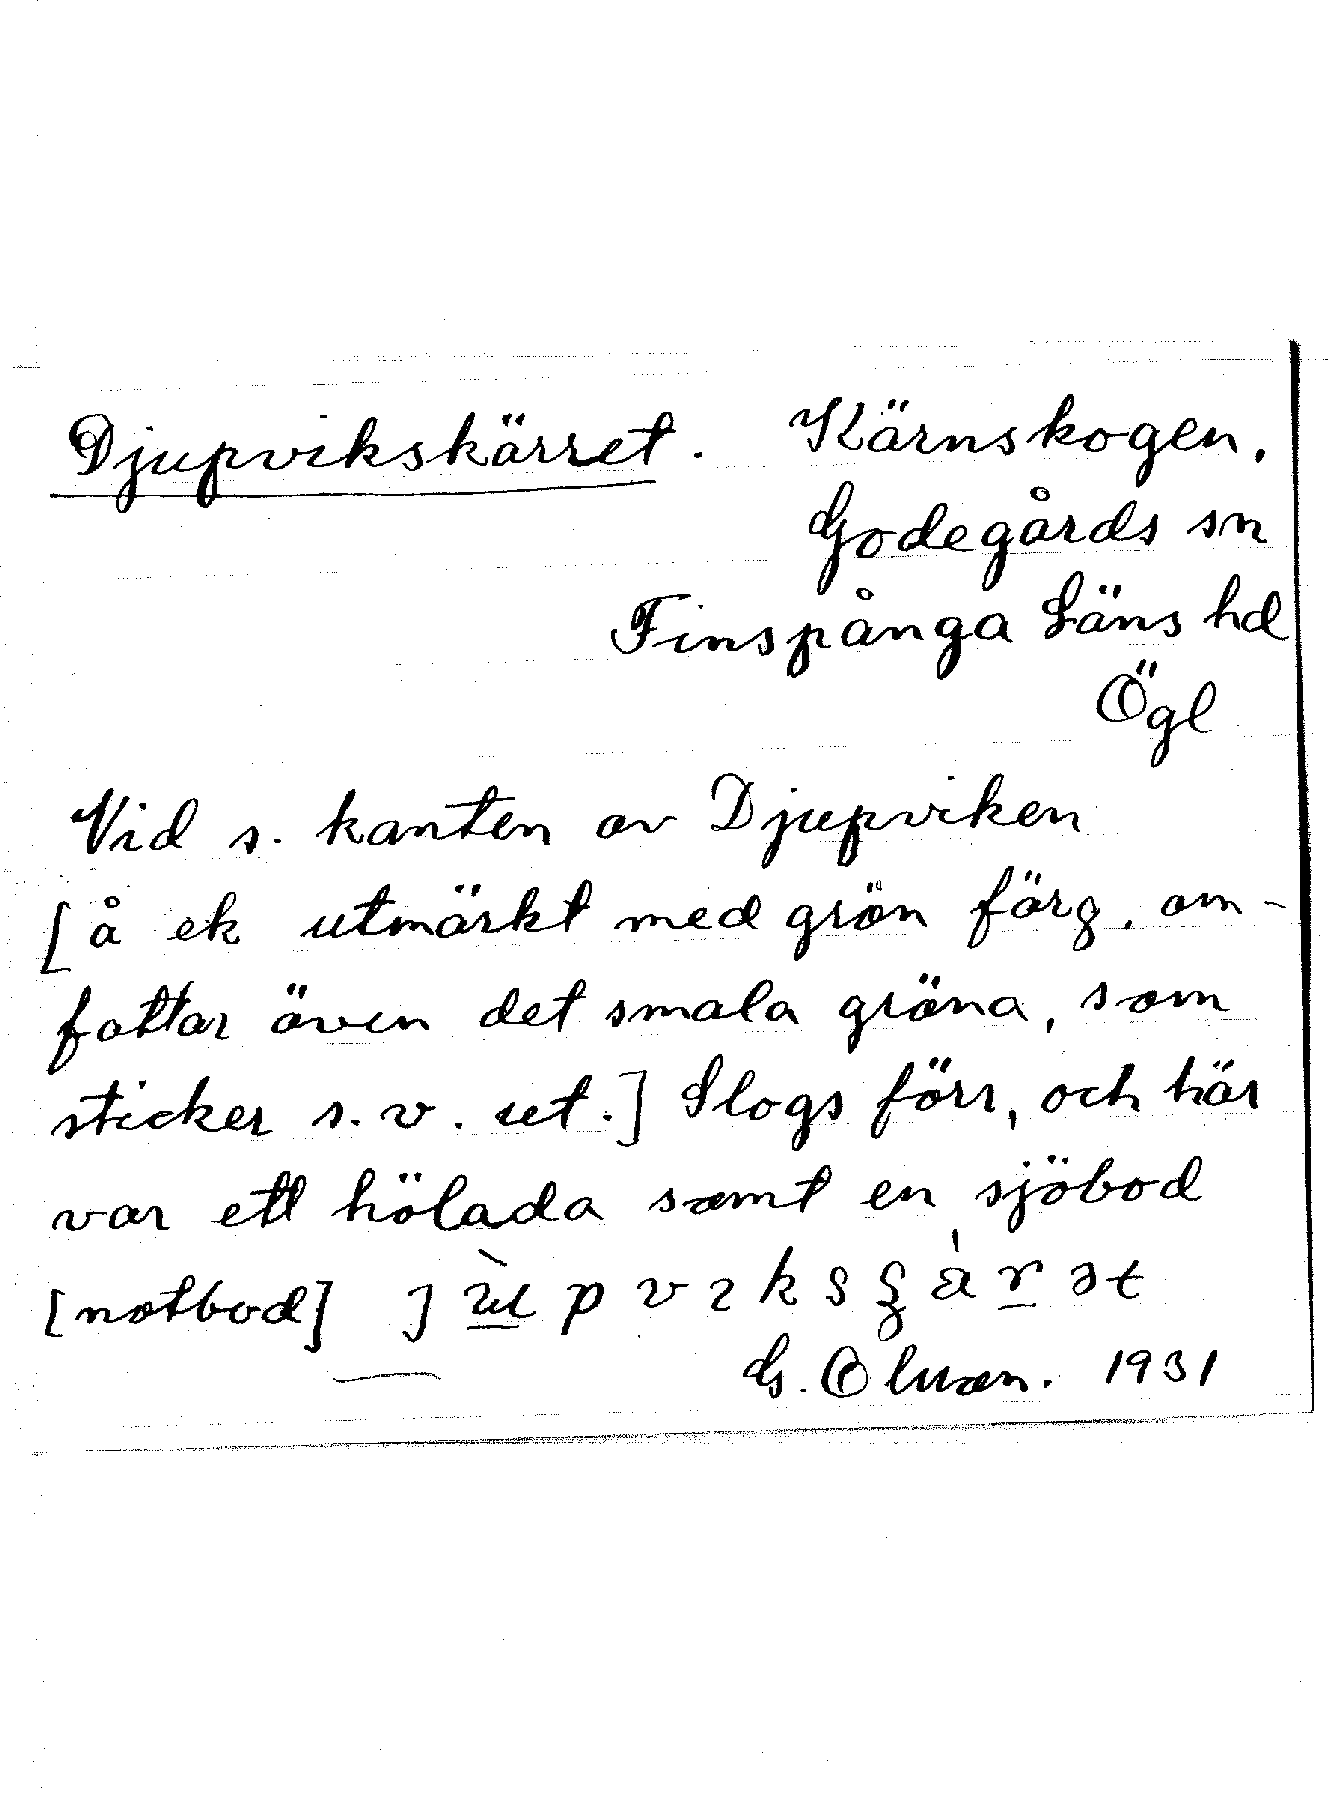 Djupvikskärret. Kärnskogen.
Godegårds sn
Finspånga Läns hd
Ögl
Vid s. kanten av Djupviken
[å ek utmärkt med grön färg, om-
fattar även det smala gröna, som
sticker s.v. ut.] Slogs förr, och här
var ett hölada samt en sjöbod
[notbod]
G. 1931